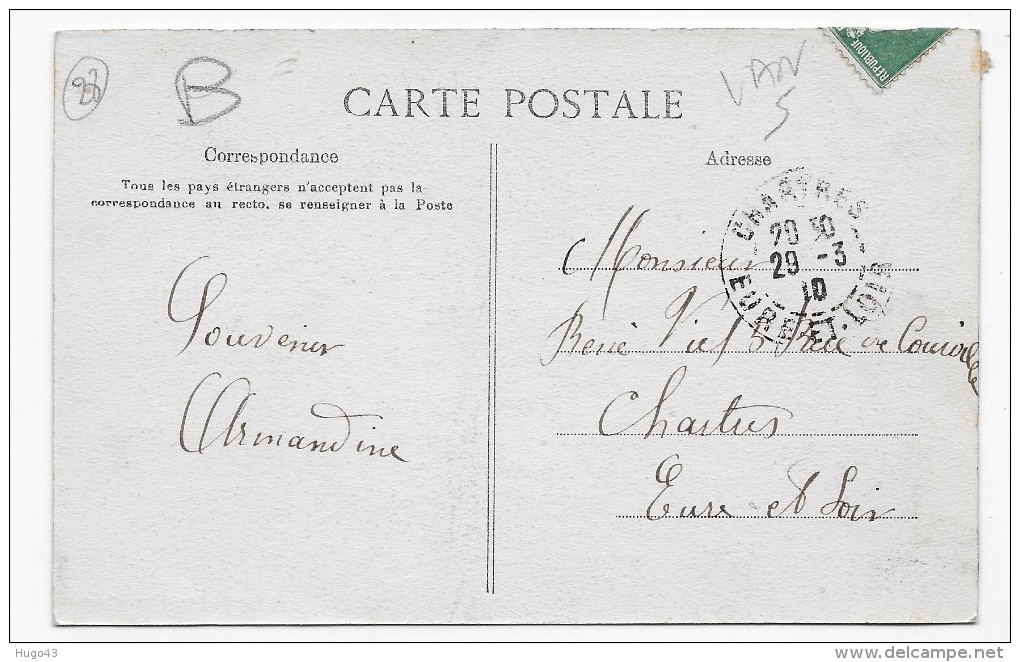 22
B
VAN
5
RÉPUBLIQUE
CARTE POSTALE
Correspondance
Adresse
Tous les pays étrangers n'acceptent pas la
correspondance au recto, se renseigner à la Poste
CHARTRES
20 30
29 - 3
10
EURE-ET-LOIR
Souvenir
Armandine
Monsieur
René Viel 5 Rue de Courville
Chartres
Eure et Loir
Hugo43
delcampe.net